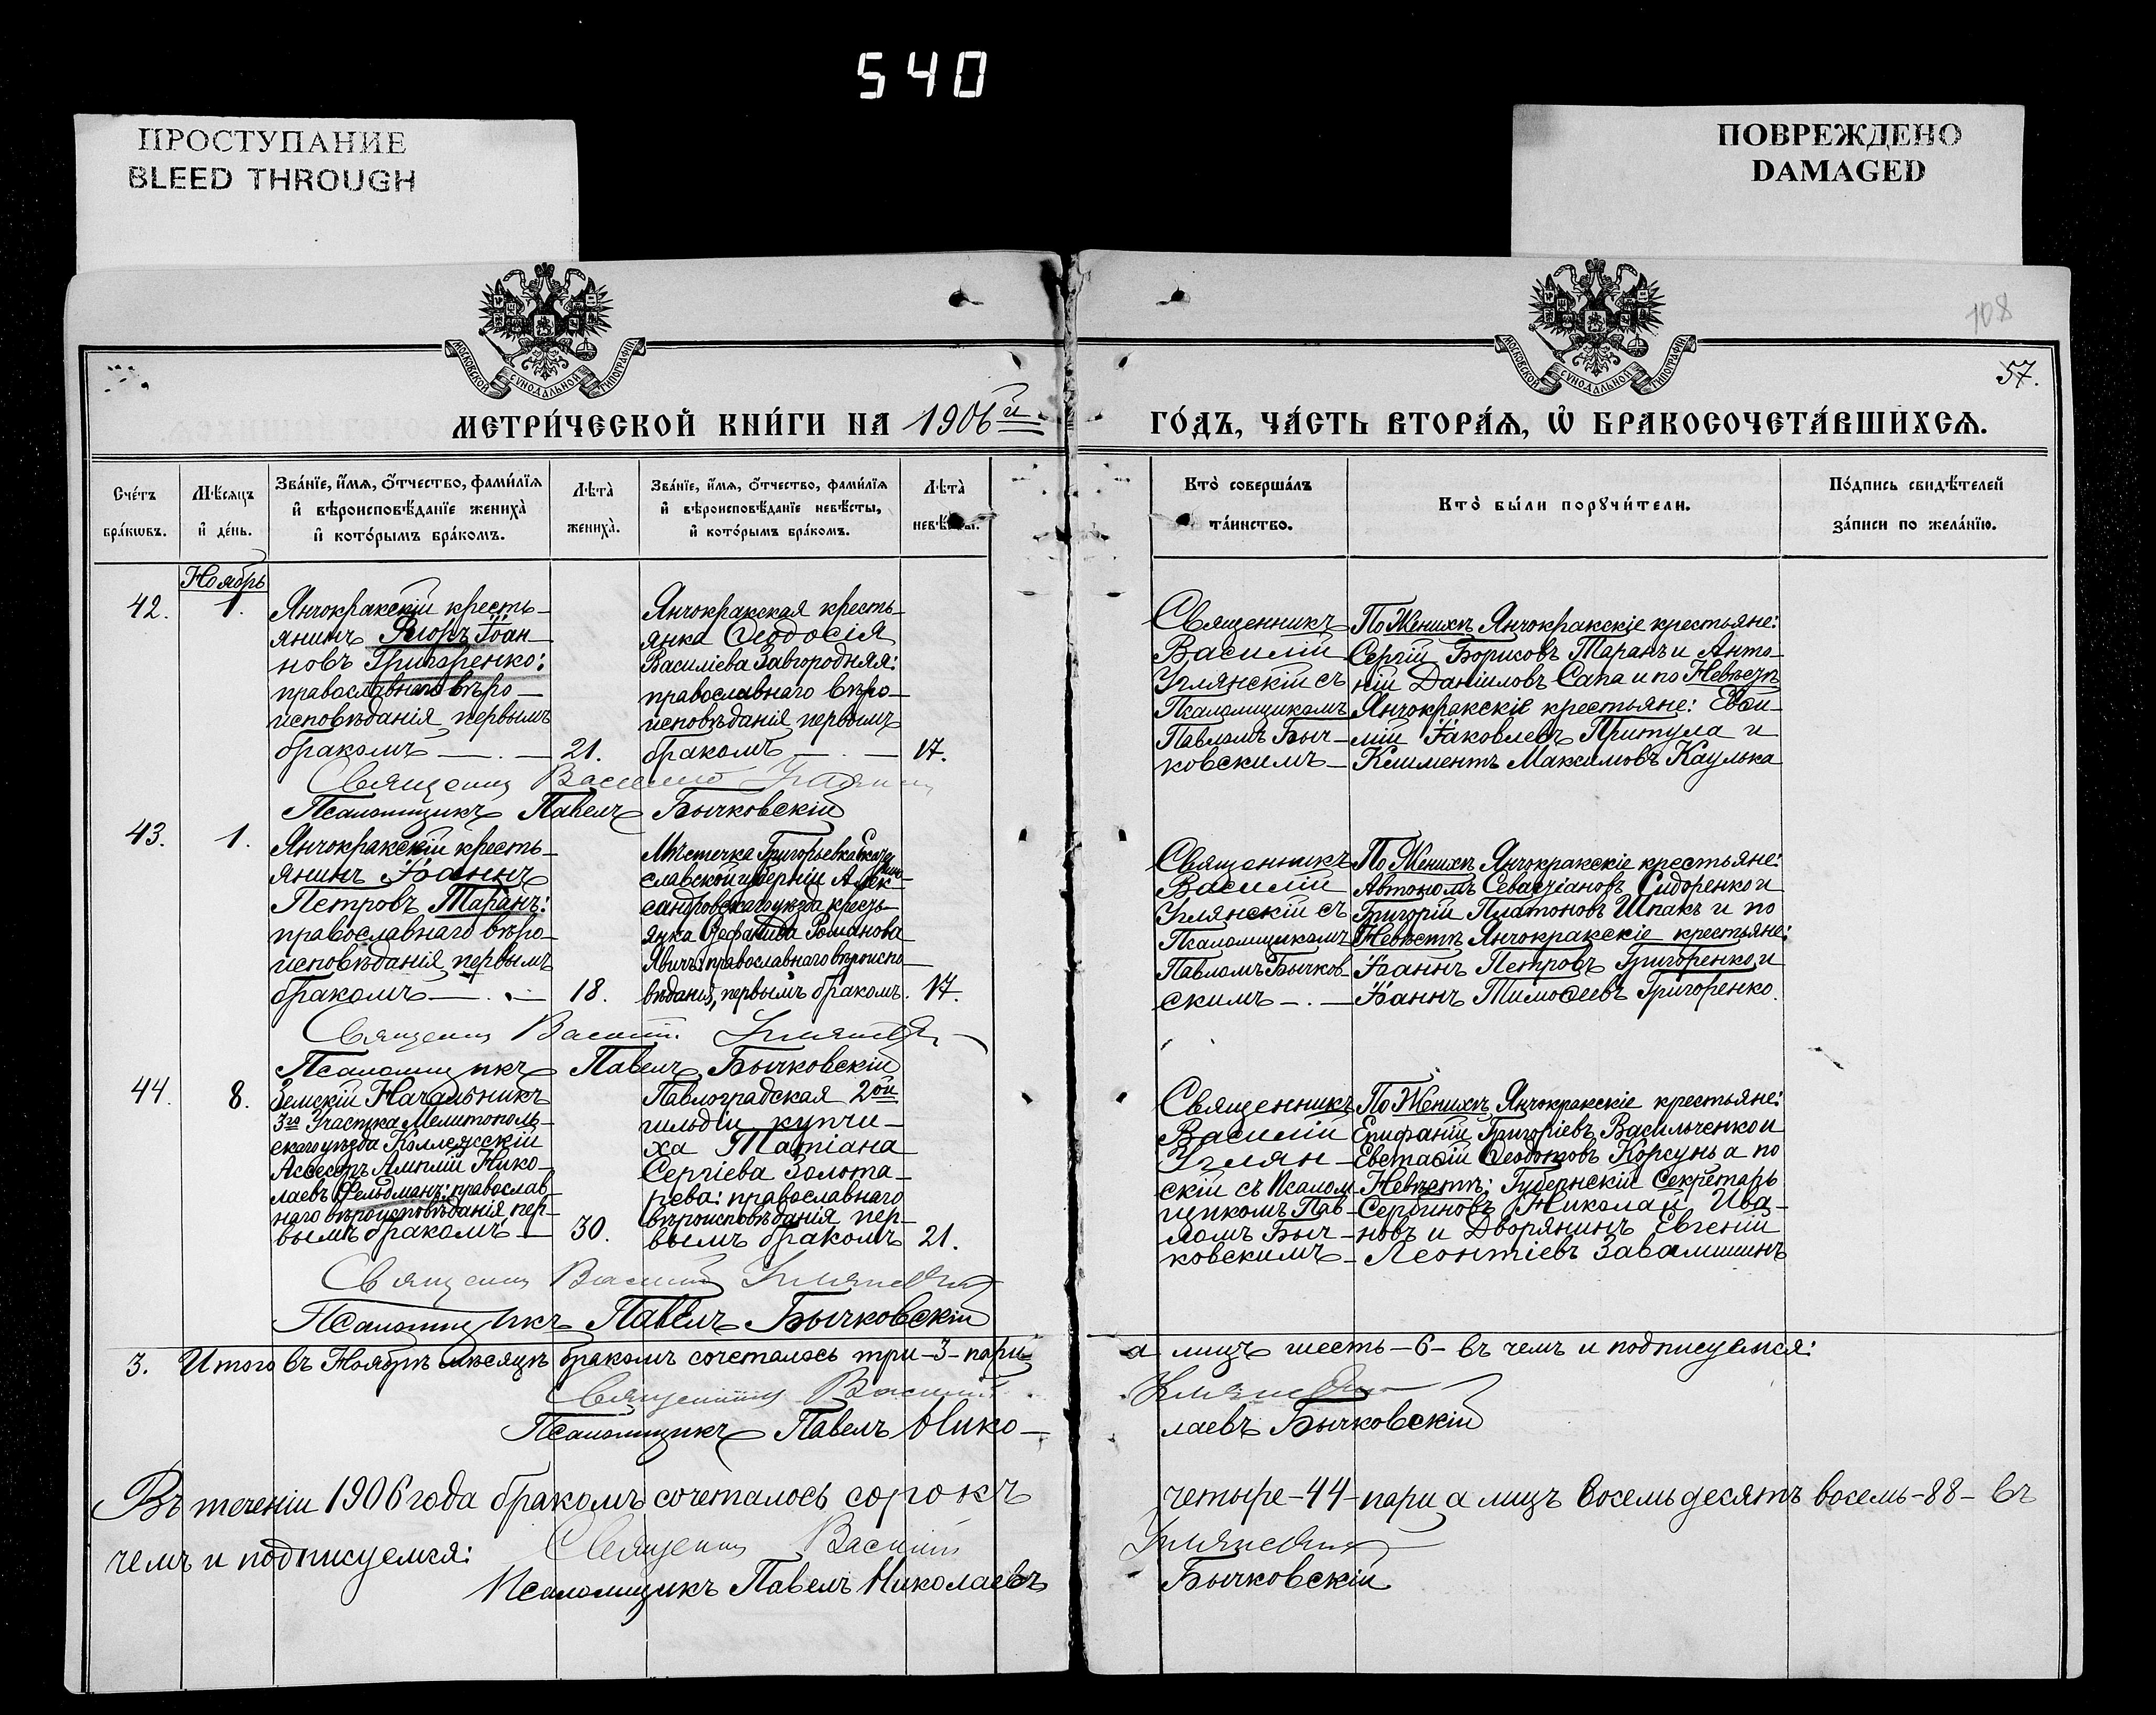 540
ПРОСТУПАНИЕ
BLEED THROUGH
ПОВРЕЖДЕНО
DAMAGED
108
57.
МОСКОВСКОЙ СѴНОДАЛЬНОЙ ТИПОГРАФІИ
МОСКОВСКОЙ СѴНОДАЛЬНОЙ ТИПОГРАФІИ
МЕТРИ́ЧЕСКОЙ КНИ́ГИ НА 1906й
ГО́ДЪ, ЧА́СТЬ ВТОРА́Ѧ, Ѽ БРАКОСОЧЕТА́ВШИХСѦ.
Сче́тъ бра́кѡвъ.
Мѣ́сяцъ и҆ де́нь.
Зва́нїе, и҆́мѧ, ѻ҆́тчество, фами́лїѧ
и҆ вѣроисповѣ́данїе жениха̀
и҆ кото́рымъ бра́комъ.
Лѣта̀ жениха̀.
Зва́нїе, и҆́мѧ, ѻ҆́тчество, фами́лїѧ
и҆ вѣроисповѣ́данїе невѣ́сты,
и҆ кото́рымъ бра́комъ.
Лѣта̀
Кто̀ соверша́лъ та́инство.
Кто̀ бы́ли порꙋчи́тели.
По́дпись свидѣ́телей за́писи по жела́нїю.
Ноябрь
42.
1.
Янчокракскій кресть-
янинъ Флоръ Іоан-
новъ Григоренко:
православнаго вѣро-
исповѣданія первымъ
бракомъ
21.
Янчокракская кресть-
янка Ѳеодосія
Василіева Завгородняя:
православнаго вѣро-
исповѣданія первымъ
бракомъ
17.
Священникъ
Василій
Углянскій съ
Псаломщикомъ
Павломъ Быч-
ковскимъ
По Женихѣ Янчокракскіе крестьяне:
Сергій Борисовъ Таранъ и Анто-
ній Даніиловъ Сапа и по Невѣстѣ
Янчокракскіе крестьяне: Евѳи-
мій Іаковлевъ Притула и
Климентъ Максимовъ Каулька
Священникъ Василій Углянскій
Псаломщикъ Павелъ Бычковскій
43.
1.
Янчокракскій кресть-
янинъ Іоаннъ
Петровъ Таранъ:
православнаго вѣро-
исповѣданія первымъ
бракомъ
18.
Мѣстечка Григорьевка Екатерино-
славской губерніи Алек-
сандровскаго уѣзда кресть-
янка Романова
Явичъ: православнаго вѣроиспо-
вѣданія, первымъ бракомъ.
17.
Священникъ
Василій
Углянскій съ
Псаломщикомъ
Павломъ Бычков-
скимъ
По Женихѣ Янчокракскіе крестьяне:
Автономъ Севастіановъ Сидоренко и
Григорій Платоновъ Шпакъ и по
Невѣстѣ Янчокракскіе крестьяне:
Іоаннъ Петровъ Григоренко и
Іоаннъ Тимоѳеевъ Григоренко.
Священникъ Василій Углянскій
Псаломщикъ Павелъ Бычковскій
44.
8.
Земскій Начальникъ
3го Участка Мелитополь-
скаго уѣзда Коллежскій
Ассесоръ Амплій Нико-
лаевъ Фельдманъ: православ-
наго вѣроисповѣданія пер-
вымъ бракомъ
30.
Павлоградская 2ой
гильдіи купчи-
ха Татіана
Сергіева Золота-
рева: православнаго
вѣроисповѣданія пер-
вымъ бракомъ
21.
Священникъ
Василій
Углян-
скій съ Псалом-
щикомъ Пав-
ломъ Быч-
ковскимъ
По Женихѣ Янчокракскіе крестьяне:
Епифаній Григоріевъ Васильченко и
Евстаѳій Ѳеодотовъ Корсунь а по
Невѣстѣ: Губернскій Секретарь
Сербиновъ Николай Ива-
новъ и Дворянинъ Евгеній
Леонтіевъ Завалишинъ
Священникъ Василій Углянскій
Псаломщикъ Павелъ Бычковскій
3. Итого въ Ноябрѣ мѣсяцѣ бракомъ сочеталось три-3-пары а лицъ шесть-6-въ чемъ и подписуемся:
Священникъ Василій Углянскій
Псаломщикъ Павелъ Нико-лаевъ Бычковскій
Въ теченіи 1906 года бракомъ сочеталось сорокъ четыре-44-пари а лицъ восемьдесятъ восемь-88-въ
чемъ и подписуемся: Священникъ Василій Углянскій
Псаломщикъ Павелъ Николаевъ Бычковскій